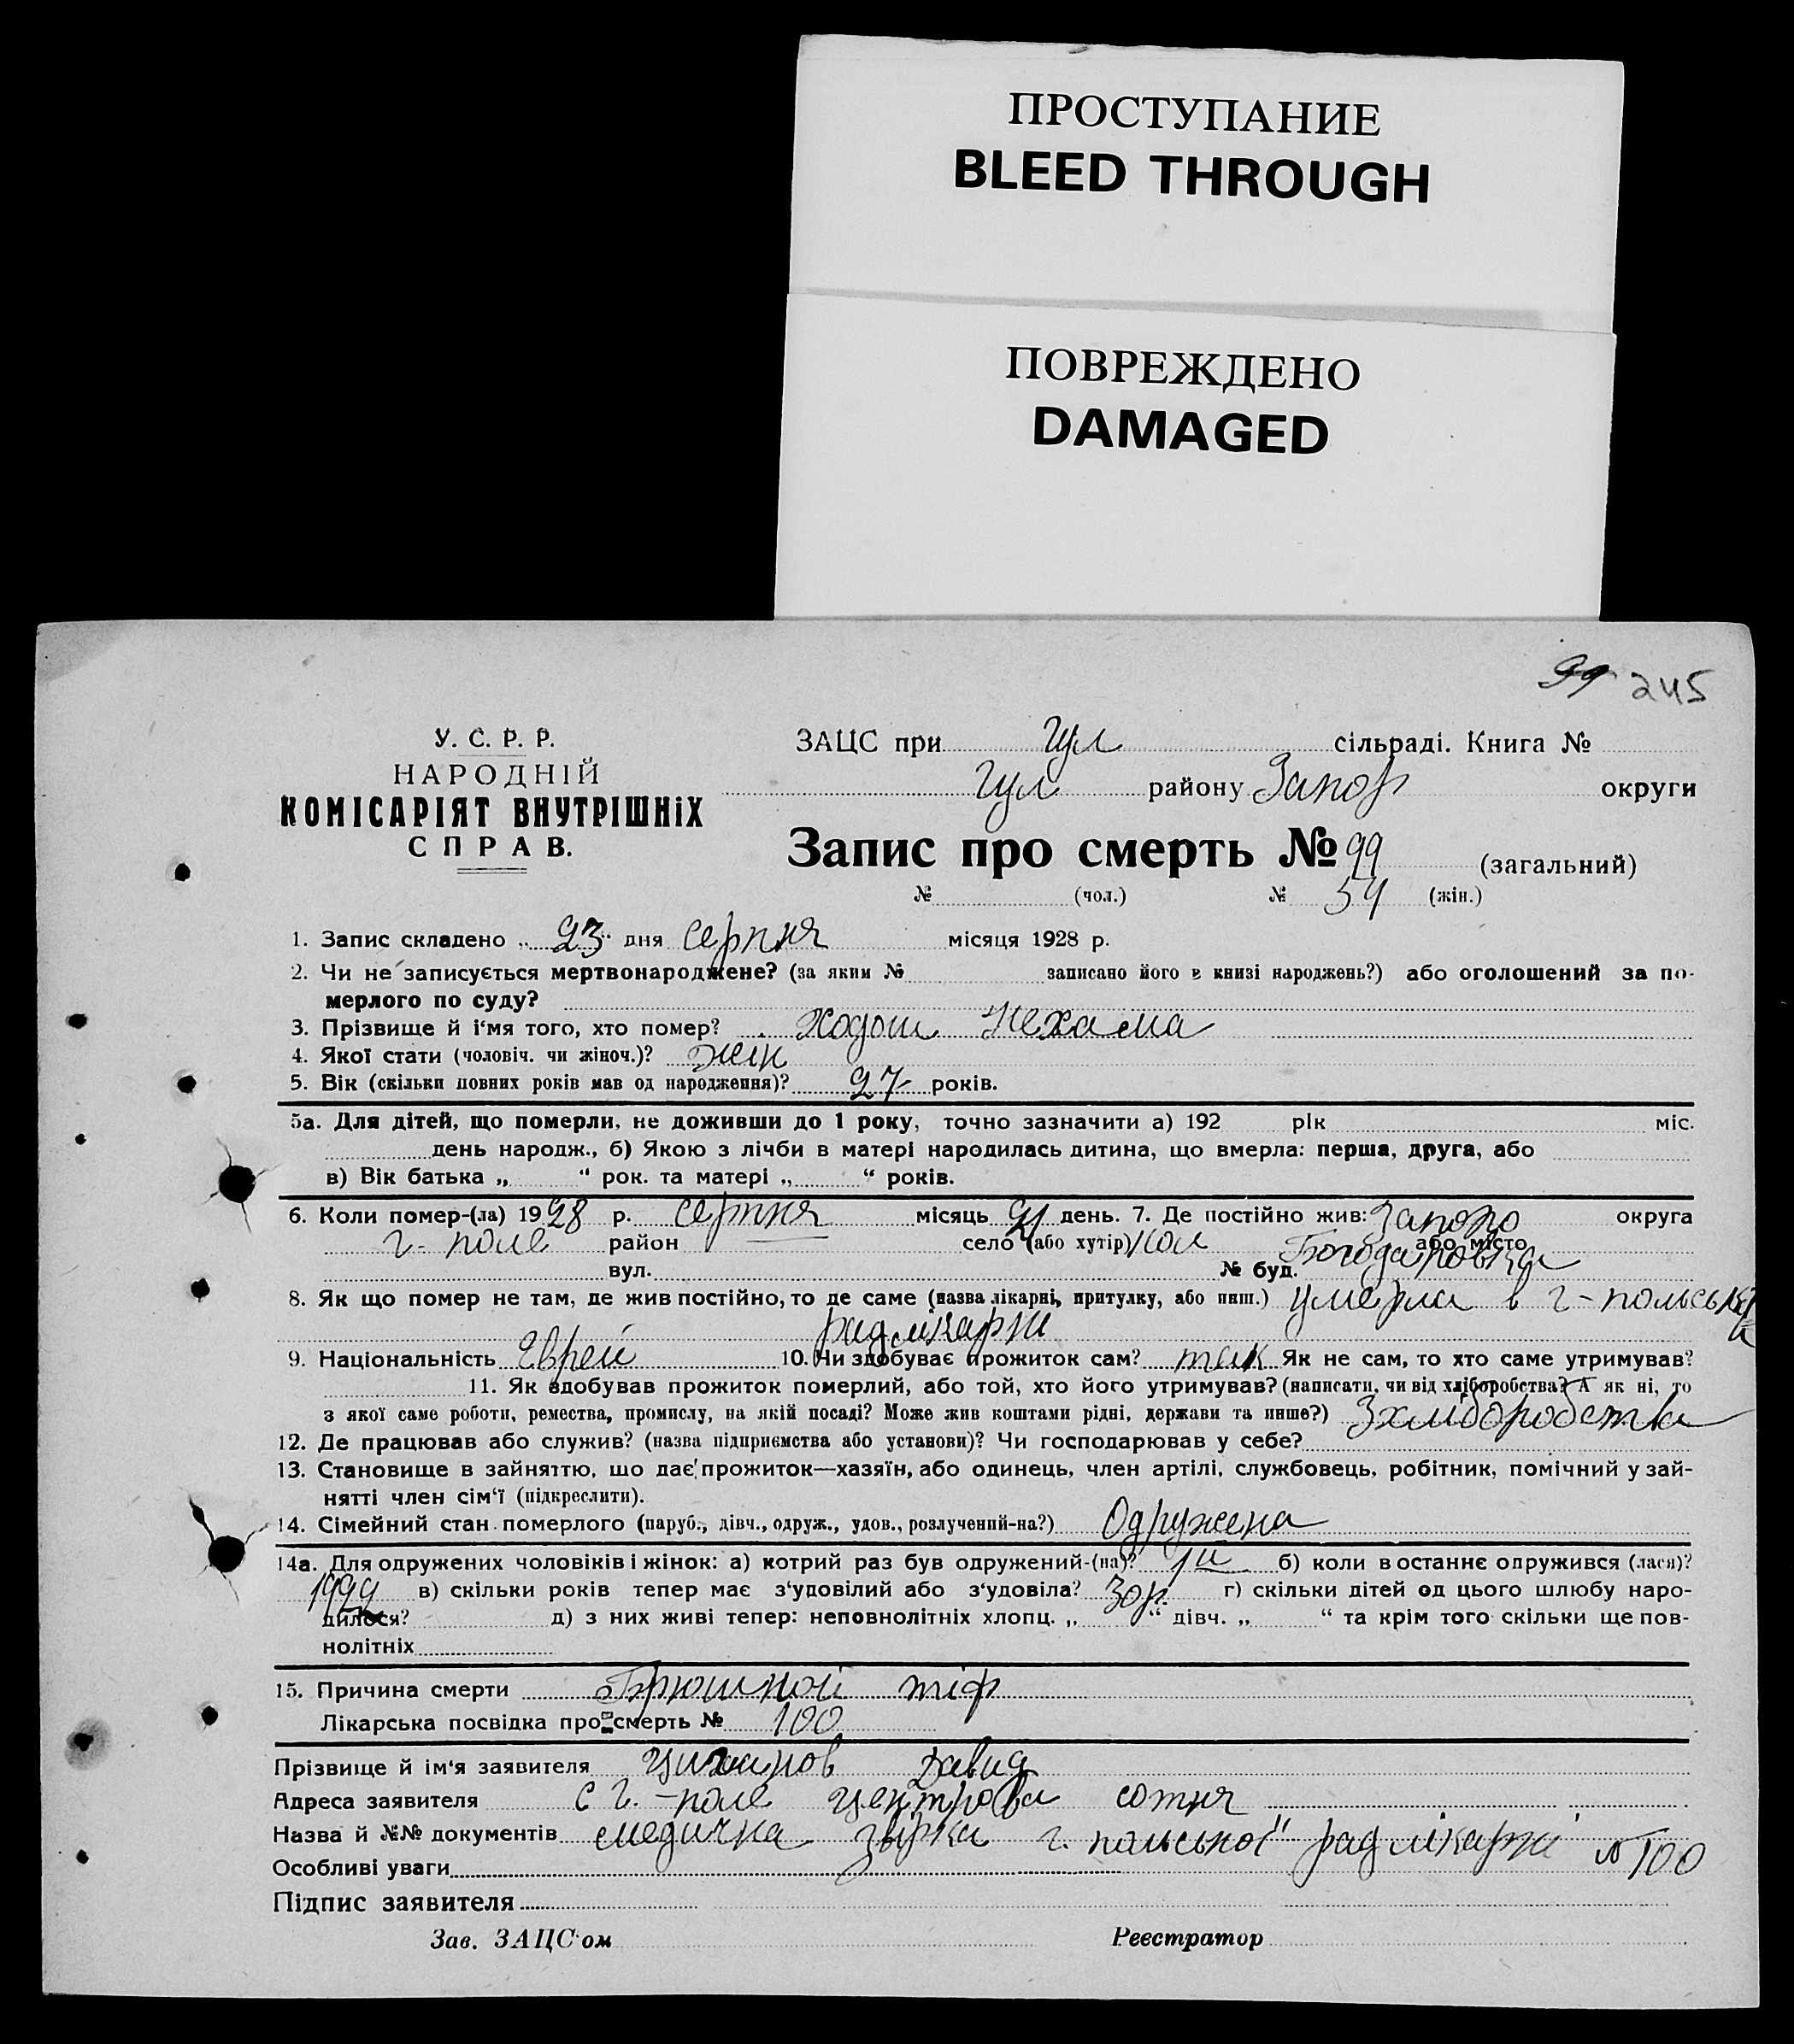 ПРОСТУПАНИЕ
BLEED THROUGH
ПОВРЕЖДЕНО
DAMAGED
99 245
У. С. Р. Р.
НАРОДНІЙ
КОМІСАРІЯТ ВНУТРІШНІХ
СПРАВ.
ЗАЦС при Гул сільраді. Книга №
Гул району Запор округи
Запис про смерть № 99 (загальний)
№ (чол.) № 54 (жін.)
1. Запис складено „ 23 " дня серпня місяця 1928 р.
2. Чи не записується мертвонароджене? (за яким № записано його в книзі народжень?) або оголошений за по-
мерлого по суду?
3. Прізвище й і'мя того, хто помер? Ходош Нехама
4. Якої стати (чоловіч. чи жіноч.)? жін
5. Вік (скільки повних років мав од народження)? 27 років.
5а. Для дітей, що померли, не доживши до 1 року, точно зазначити а) 192 рік міс.
день народж., б) Якою з лічби в матері народилась дитина, що вмерла: перша, друга, або
в) Вік батька „ " рок. та матері „ " років.
6. Коли помер-(ла) 1928 р. серпня місяць 21 день. 7. Де постійно жив: Запоро округа
г- поле район село (або хутір) кол Богодаровка або місто
вул. № буд.
8. Як що помер не там, де жив постійно, то де саме (назва лікарні, притулку, або инш.) умерла в г-польські
рад лікарні
9. Національність Єврей 10. Чи здобуває прожиток сам? так Як не сам, то хто саме утримував?
11. Як здобував прожиток померлий, або той, хто його утримував? (написати, чи від хліборобства? А як ні, то
з якої саме роботи, ремества, промислу, на якій посаді? Може жив коштами рідні, держави та инше?) Зхліборобства
12. Де працював або служив? (назва підприємства або установи)? Чи господарював у себе?
13. Становище в зайняттю, що дає прожиток—хазяїн, або одинець, член артілі, службовець, робітник, помічний у зай-
нятті член сім'ї (підкреслити).
14. Сімейний стан померлого (паруб., дівч., одруж., удов., розлучений-на?) Одружена
14а. Для одружених чоловіків і жінок: а) котрий раз був одружений-(на)? 1й б) коли в останнє одружився (лася)?
1922 в) скільки років тепер має з'удовілий або з'удовіла? 30 р. г) скільки дітей од цього шлюбу наро-
дилося? д) з них живі тепер: неповнолітніх хлопц. „ " дівч. „ " та крім того скільки ще пов-
нолітніх
15. Причина смерти Брюшной тіф
Лікарська посвідка про смерть № 100
Прізвище й ім'я заявителя Давид
Адреса заявителя с Г.-поле центрова сотня
Назва й №№ документів медична г. польської рад лікарні № 100
Особливі уваги
Підпис заявителя
Зав. ЗАЦС'ом Реєстратор